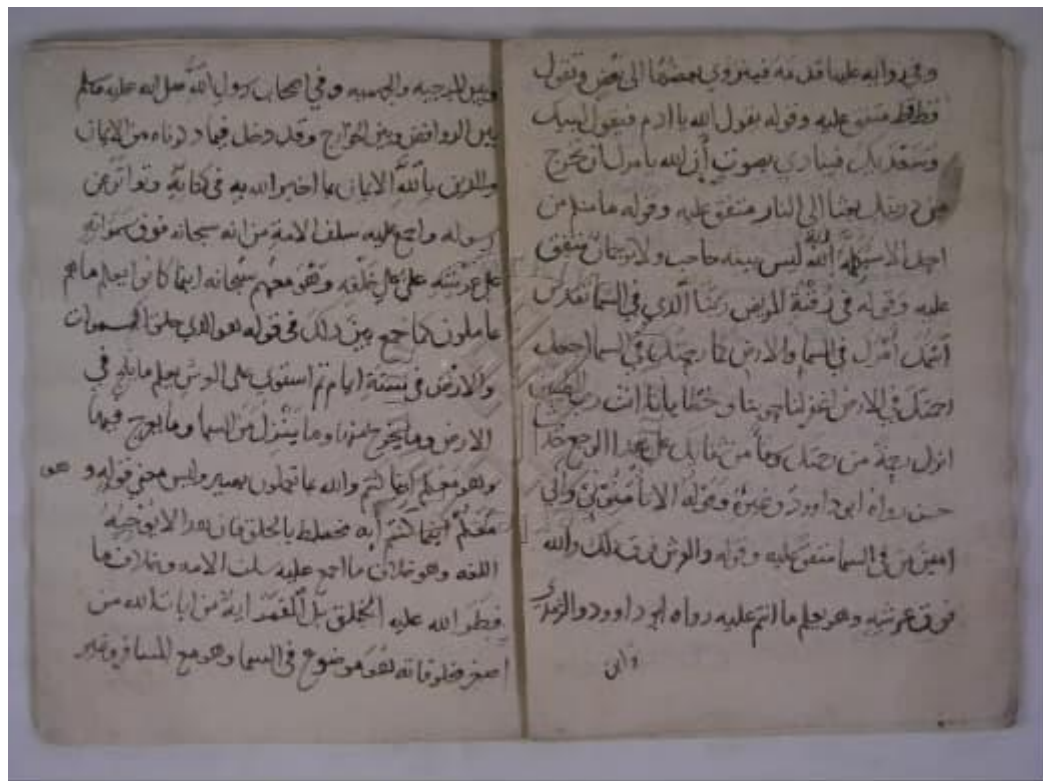 وفي رواية عليها قدمه فينزوي بعضها الى بعض وتقول
قط قط متفق عليه وقوله يقول الله يا ادم فيقول لبيك
وسعديك فينادي بصوت إن الله يامرك ان تخرج
من ذريتك بعثا الى النار متفق عليه وقوله ما منكم من
احد الا سيكلمه الله ليس بينه حاجب ولا ترجمان متفق
عليه وقوله في رقية المريض ربنا الذي في السما تقدس
اسمك أمرك في السما والارض كما رحمتك في السما اجعل
رحمتك في الارض اغفر لنا حوبنا وخطايانا انت رب الطيبين
انزل رحمة من رحمتك وشفاً من شفايك على هذا الوجع
حسن رواه ابي داوود وغيره وقوله الا تأمنوني وانا
امين من في السما متفق عليه وقوله والعرش فوق ذلك والله
فوق عرشه وهو يعلم ما انتم عليه رواه ابو داوود والترمذي
وبين المرجيه والجهميه وفي اصحاب رسول الله صلى الله عليه وسلم
بين الروافض وبين الخوارج وقد دخل فيما ذكرناه من الايمان
بالله الايمان بما اخبر الله به في كتابه وتواتر عن
رسوله واجمع عليه سلف الامة من انه سبحانه فوق سمواته
على عرشه عليٌ على خلقه وهو معهم سبحانه اينما كانوا يعلم ما هم
عاملون كما جمع بين ذلك في قوله هو الذي خلق السموات
والارض في ستة ايام ثم استوى على العرش يعلم ما يلج في
الارض وما يخرج منها وما ينزل من السما وما يعرج فيها
وهو معكم اينما كنتم والله بما تعملون بصير وليس معنى قوله و هو
معكم اينما كنتم أنه مختلط بالخلق فان هذا لا توجبه
اللغه وهو خلاف ما اجمع عليه سلف الامه وخلاف ما
فطر الله عليه الخلق بل القمر اية من ايات الله من
اصغر مخلوقاته هو موضوع في السما وهو مع المسافر وغير